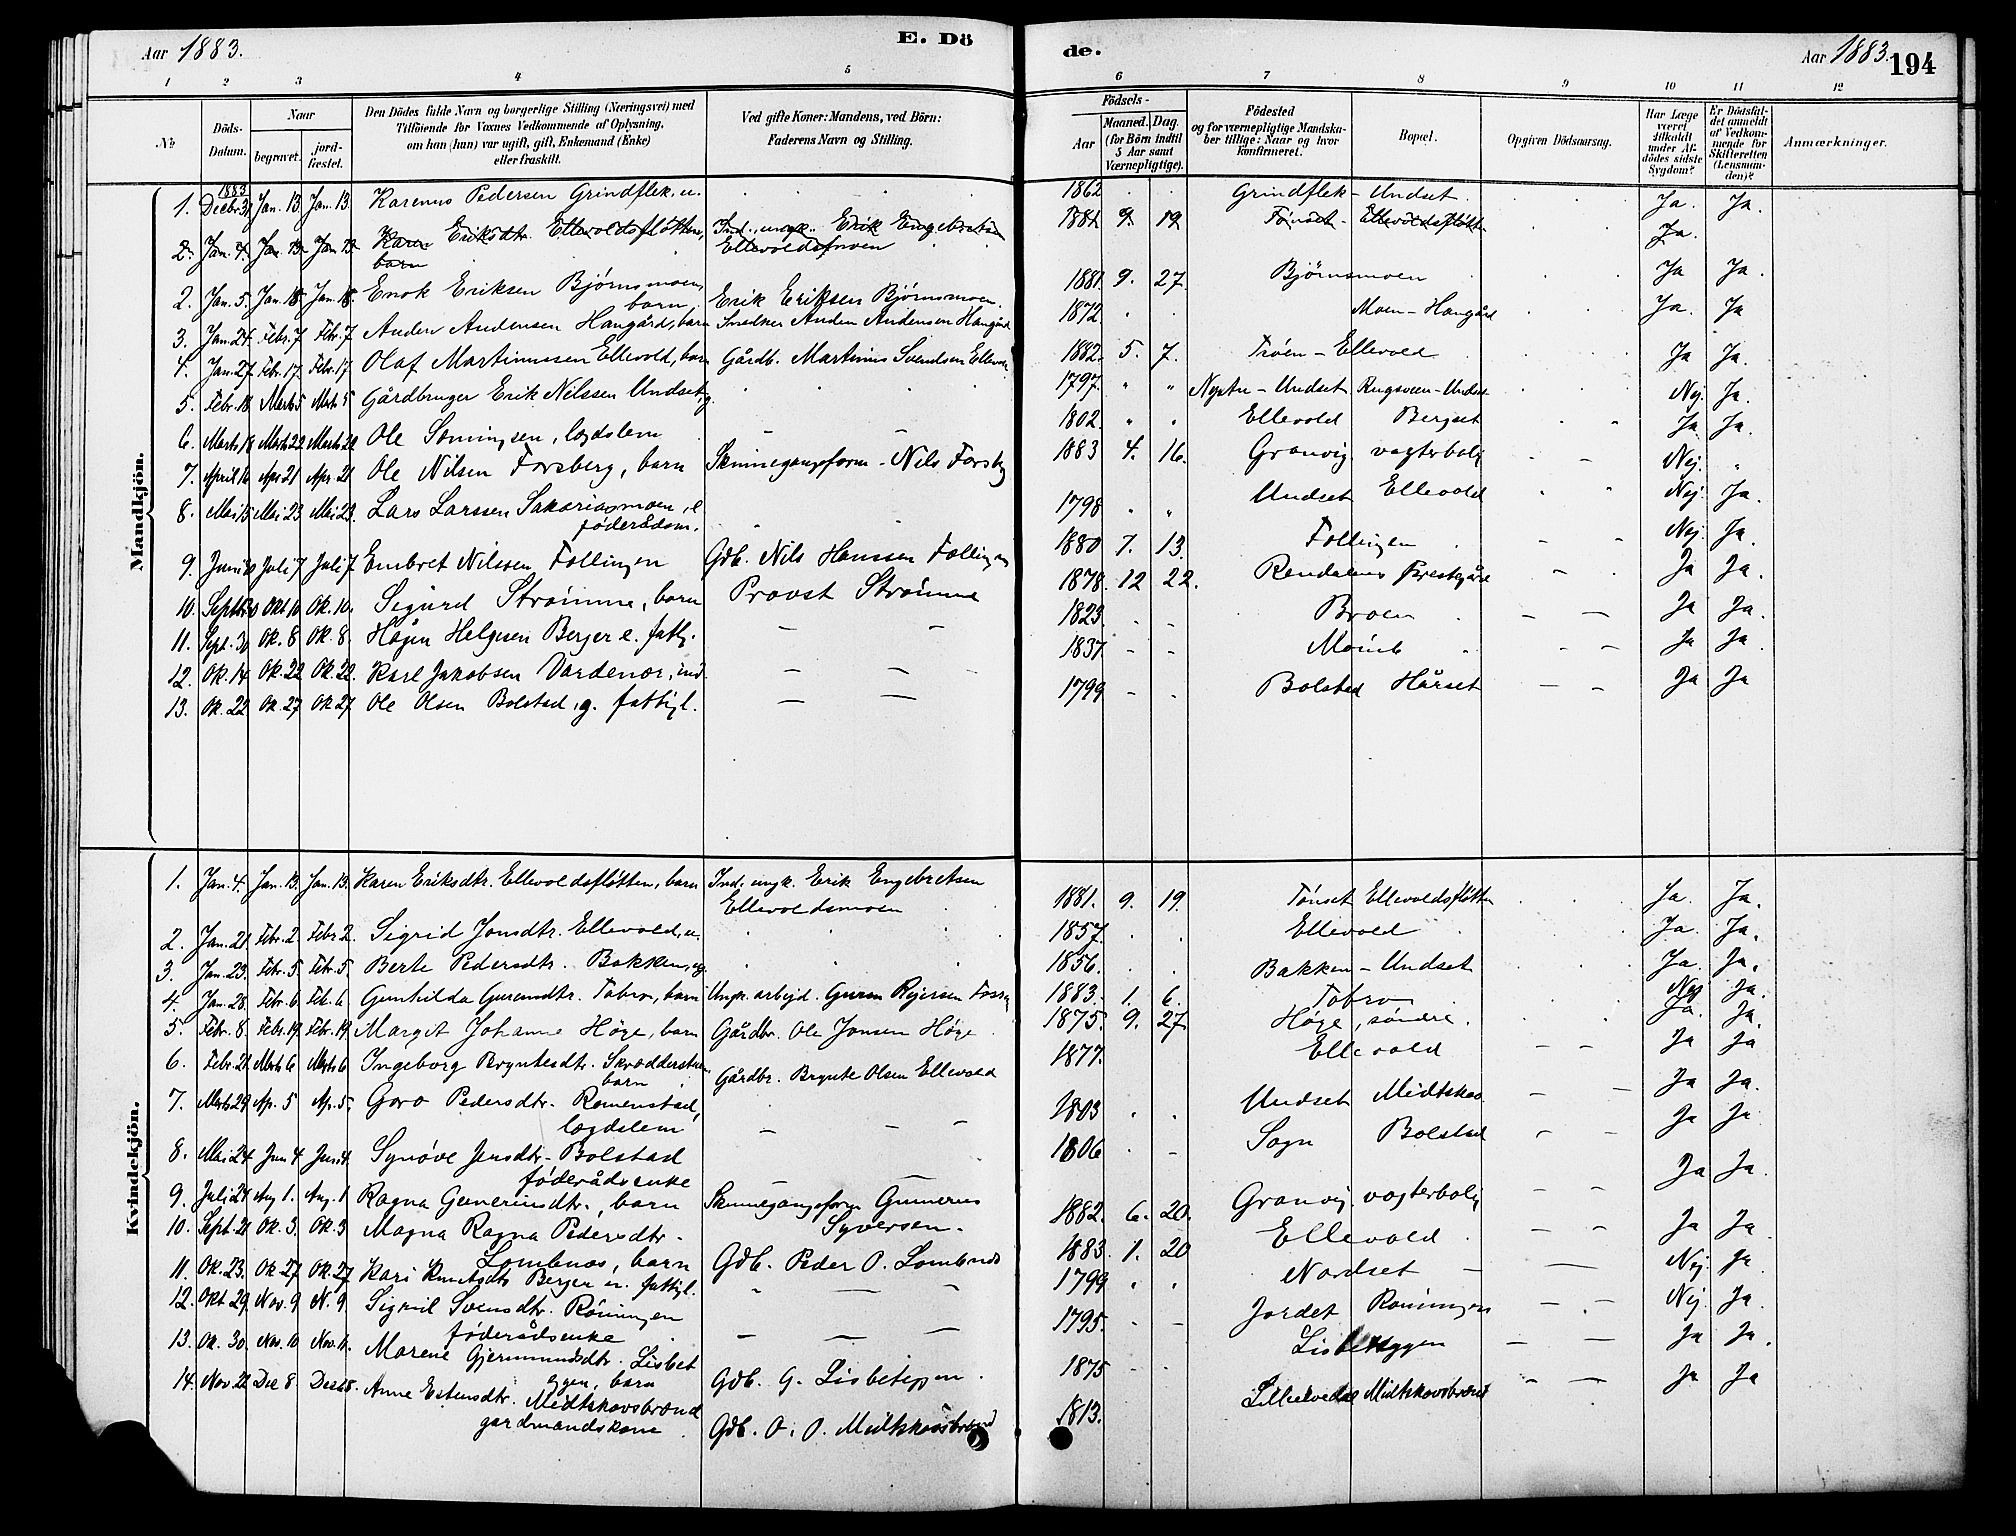 Aar 1883.
E. Dö
de.
Aar 1883.
194
1 2 3 4 5 6 7 8 9 10 11 12
№
Döds-Datum.
Naar
begravet.
jordfæstet.
Den Dödes fulde Navn og borgerlige Stilling (Næringsvei) med
Tilföiende for Voxnes Vedkommende af Oplysning,
om han (hun) var ugift, gift, Enkemand (Enke)
eller fraskilt.
Ved gifte Koner: Mandens, ved Börn:
Faderens Navn og Stilling.
Födsels-
Aar
Maaned. Dag.
(for Börn indtil
5 Aar samt
Værnepligtige).
Födested
og for værnepligtige Mandskaber
tillige: Naar og hvor
konfirmeret.
Bopæl.
Opgiven Dödsaarsag.
Har Læge været tilkaldt under Afdödes sidste Sygdom?
Er Dödsfaldet anmeldt af Vedkommende for Skifteretten (Lensmanden)?
Anmærkninger.
Mandkjön.
1883
1. Decbr 31 Jan. 13. Jan. 13. Karenus Pedersen Grindflek, u. 1862 Grindflek - Undset. Ja. Ja.
2. Jan. 4. Jan. 13. Jan. 13. Karen Eriksdtr. Ellevoldsfløtten, Ind., ungk. Erik Engebretsen 1881 9. 19 Tönset - Ellevoldsfløtten Ja.
barn Ellevoldsmoen
2. Jan. 5. Jan. 18. Jan. 18. Enok Eriksen Bjørnsmoen, barn Erik Eriksen Bjørnsmoen. 1881. 9. 27. Bjørnsmoen Ja Ja.
3. Jan. 24. Febr. 7 Febr. 7 Anders Andersen Hangård, barn Anders Andersen Hangård 1872. Moen - Hangård Ja. Ja
4. Jan. 27 Febr. 17. Febr. 17 Olaf Martinussen Ellevold, barn Gårdb. Martinus Svendsen Ellevold 1882. 5. 7. Trøen - Ellevold Ja Ja.
5. Febr. 18 Marts 5 Marts 5 Gårdbruger Erik Nilssen Undset, g. 1797. " " - Undset - Undset Nej. Ja.
6. Marts 18 Marts 22 Marts 22 Ole Semingsen, lægdslem 1802. Ellevold Berset Ja Ja.
7. April 16 Apr 21 Apr. 21 Ole Nilsen Forsberg, barn Skinnegangsform. Nils Forsberg 1883 4. 16. Granvig vogterbolig Nej.
8. Mai 15 Mai 23 Mai 23. Lars Larssen Sakariasmoen, e 1798 Undset Ellevold Nej Ja.
föderådsm.
9. Juni 30 Juli 7 Juli 7 Embret Nilssen Follingen Gdb. Nils Hanssen Follingen 1880 7. 13. Follingen Nej. Ja.
10. Septbr 30 Okt 10 Ok. 10. Sigurd Strömme, barn Provst Strömme 1878. 12 22. Rendalens Prestegård Ja Ja.
11. Sept. 30 Ok. 8 Ok. 8. Hågen Helgesen Berger e. fattig. 1823. Broen Ja Ja.
12. Ok. 14 Ok. 22 Ok. 22. Karl Jakobsen Vardenær, ind. 1837. Ja Ja.
13. Ok. 22 Ok. 27 Ok 27 Ole Olsen Bolstad, g. fattigl. 1799 Bolstad Hårset Ja Ja
Kvindekjön.
1. Jan. 4. Jan. 13. Jan. 13. Karen Eriksdtr. Ellevoldsfløtten, barn Ind., ungk. Erik Engebretsen 1881. 9. 19. Tönset Ellevoldsfløtten Ja. Ja.
Ellevoldsmoen
2. Jan. 21. Febr. 2. Febr. 2. Sigrid Jonsdtr. Ellevold, u. 1857. Ellevold Ja. Ja.
3. Jan. 23. Febr. 5. Febr. 5. Berte Pedersdtr. Bakken, ug. 1856. Bakken - Undset Ja. Ja.
4. Jan. 28. Febr. 6 Feb. 6 Gunhilda Tobro, barn Ungk. arbejd. 1883. 1. 6. Tobro Nej Ja.
5. Febr. 8. Febr. 19. Febr. 19. Margit Johanne Höge, barn Gårdbr. Ole Jonsen Höge 1875. 9. 27. Höge, söndre. Ja. Ja.
6. Febr. 21 Marts 6 Marts 6 Ingeborg Bryntesdtr. Skrædderstuen Gårdbr. Brynte Olsen Ellevold 1877. Ellevold Ja Ja
barn
7. Marts 29 Ap. 5 Ap. 5. Goro Pedersdtr. Romenstad, 1803 Undset Midtskov Ja Ja.
lægdslem
8. Mai 24 Jun 4 Jun 4. Synöve Jensdtr. Bolstad 1806 Sogn Bolstad Ja Ja
föderådsenke
9. Juli 24 Aug 1. Aug. 1 Ragna Gunerinsdtr., barn Skinnegangsform Gunerius 1882. 6. 20. Granvig vogterbolig Ja Ja.
Syversen.
10. Sept. 21 Ok. 3. Ok. 3 Magna Ragna Pedersdtr. 1883. 1. 20 Ellevold Ja Ja.
Lombnæs, barn Gdb. Peder O. Lombnæs
11. Ok. 23. Ok. 27 Ok. 27 Kari Knutsdtr Berger u. fattigl. 1799 Nordset Nej Ja
12. Okt 29. Nov. 9 N. 9. Sigrid Svensdtr. Röningen 1795. Jordet Roningen Nej Ja.
föderådsenke
13. Ok. 30. Nov. 10 Nov. 10. Marene Gjermundsdtr. Lisbet- 1875 Lisbeteggen Ja Ja.
eggen, barn Gdb. G. Lisbeteggen
14. Nov. 22 Dec 8 Dec 8. Anne Estensdtr. Midtskovsbrænd 1813. Lilleelvedal Midtskovsbrænd Ja Ja
gardmandskone Gdb. O. O. Midtskovsbrænd